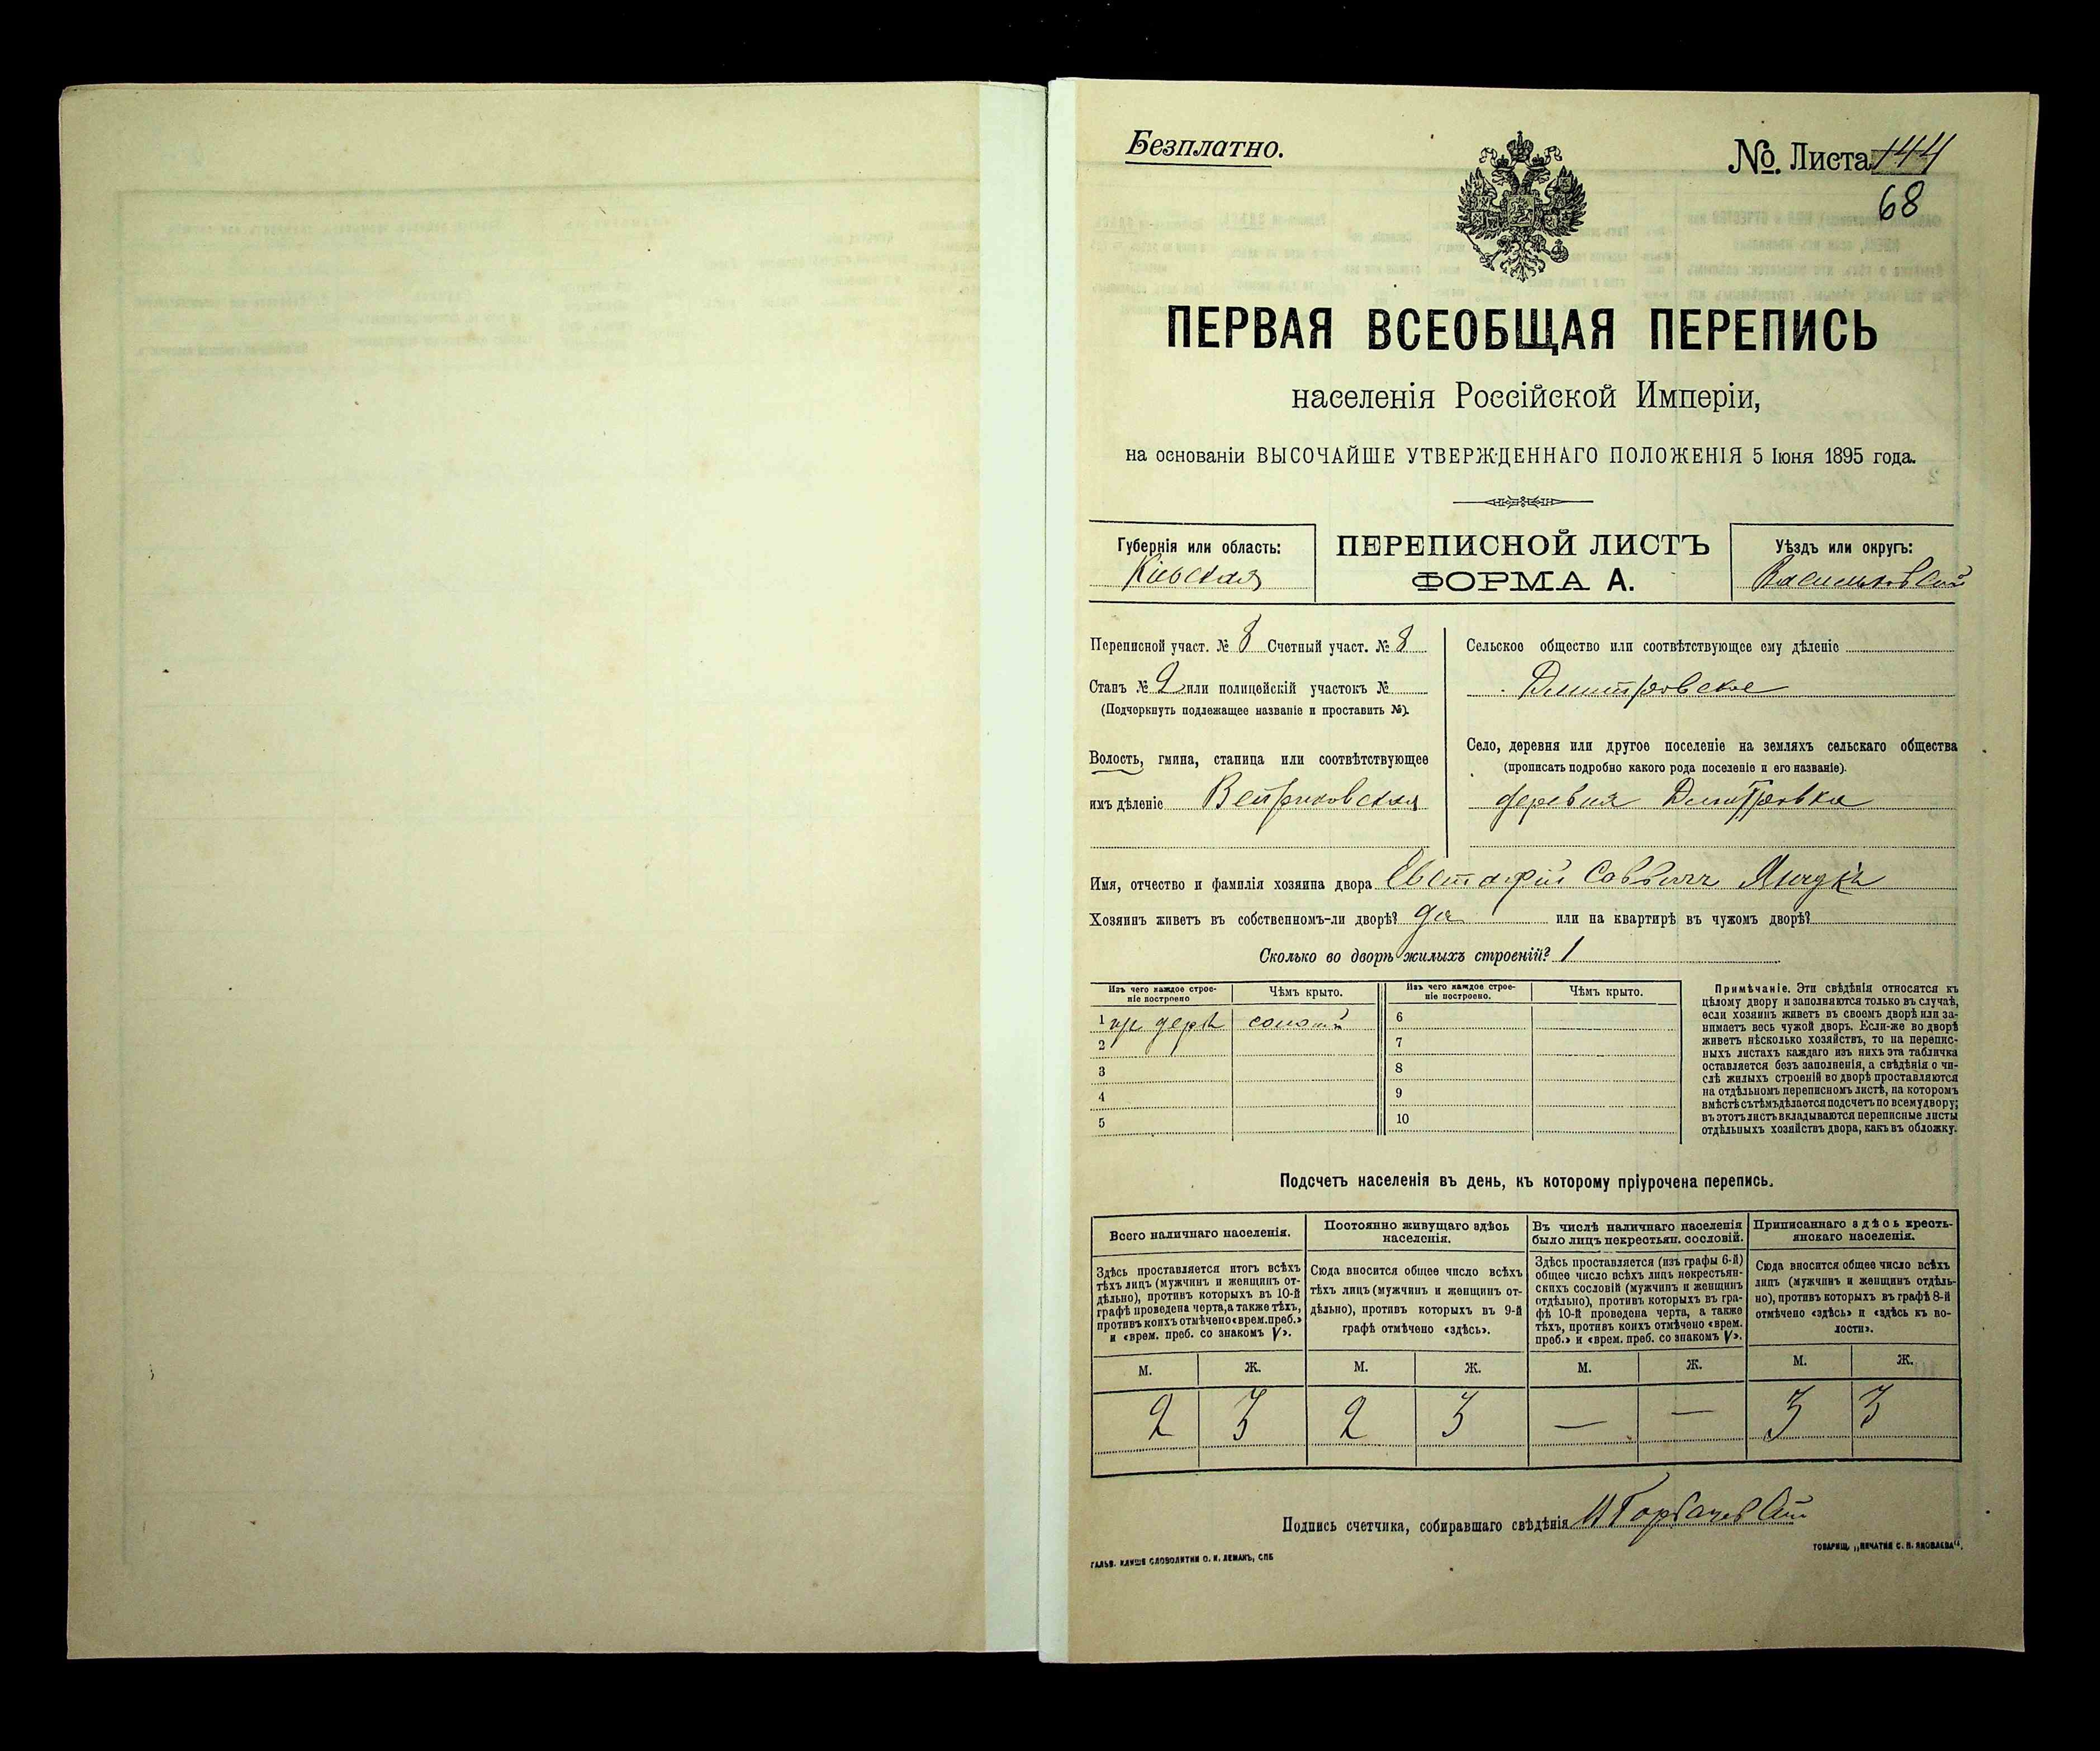 Безплатно.
№. Листа 144
68
ПЕРВАЯ ВСЕОБЩАЯ ПЕРЕПИСЬ
населенія Россійской Имперіи,
на основаніи ВЫСОЧАЙШЕ УТВЕРЖДЕННАГО ПОЛОЖЕНІЯ 5 Іюня 1895 года.
Губернія или область:
Кіевская
ПЕРЕПИСНОЙ ЛИСТЪ
ФОРМА А.
Уѣздъ или округъ:
Васильковскій
Переписной участ. № 8 Счетный участ. № 8
Станъ № 2 или полицейскій участокъ №
(Подчеркнуть подлежащее названіе и проставить №).
Волость, гмина, станица или соотвѣтствующее
имъ дѣленіе
Сельское общество или соотвѣтствующее ему дѣленіе
Дмитровское
Село, деревня или другое поселеніе на земляхъ сельскаго общества
(прописать подробно какого рода поселеніе и его названіе).
деревня Дмитровка
Имя, отчество и фамилія хозяина двора Евстафій Саввичъ
Хозяинъ живетъ въ собственномъ-ли дворѣ? да или на квартирѣ въ чужомъ дворѣ?
Сколько во дворѣ жилыхъ строеній? 1
Изъ чего каждое строе-
ніе построено
Чѣмъ крыто.
Изъ чего каждое строе-
ніе построено.
Чѣмъ крыто.
1 дерев
6
2
7
3
8
4
9
5
10
Примѣчаніе. Эти свѣдѣнія относятся къ
цѣлому двору и заполняются только въ случаѣ,
если хозяинъ живетъ въ своемъ дворѣ или за-
нимаетъ весь чужой дворъ. Если-же во дворѣ
живетъ нѣсколько хозяйствъ, то на перепис-
ныхъ листахъ каждаго изъ нихъ эта табличка
оставляется безъ заполненія, а свѣдѣнія о чи-
слѣ жилыхъ строеній во дворѣ проставляются
на отдѣльномъ переписномъ листѣ, на которомъ
вмѣстѣ съ тѣмъ дѣлается подсчетъ по всему двору;
въ этотъ листъ вкладываются переписные листы
отдѣльныхъ хозяйствъ двора, какъ въ обложку.
Подсчетъ населенія въ день, къ которому пріурочена перепись.
Всего наличнаго населенія.
Здѣсь проставляется итогъ всѣхъ
тѣхъ лицъ (мужчинъ и женщинъ от-
дѣльно), противъ которыхъ въ 10-й
графѣ проведена черта, а также тѣхъ,
противъ коихъ отмѣчено «врем. преб.»
и «врем. преб. со знакомъ V».
Постоянно живущаго здѣсь
населенія.
Сюда вносится общее число всѣхъ
тѣхъ лицъ (мужчинъ и женщинъ от-
дѣльно), противъ которыхъ въ 9-й
графѣ отмѣчено «здѣсь».
Въ числѣ наличнаго населенія
было лицъ некрестьян. сословій.
Здѣсь проставляется (изъ графы 6-й)
общее число всѣхъ лицъ некрестьян-
скихъ сословій (мужчинъ и женщинъ
отдѣльно), противъ которыхъ въ гра-
фѣ 10-й проведена черта, а также
тѣхъ, противъ коихъ отмѣчено «врем.
преб.» и «врем. преб. со знакомъ V».
Приписаннаго здѣсь кресть-
янскаго населенія.
Сюда вносится общее число всѣхъ
лицъ (мужчинъ и женщинъ отдѣль-
но), противъ которыхъ въ графѣ 8-й
отмѣчено «здѣсь» и «здѣсь къ во-
лости».
М. Ж. М. Ж. М. Ж. М. Ж.
2 3 2 3 — — 3 3
Подпись счетчика, собиравшаго свѣдѣнія Горбачевскій
ГАЛЬВ. КЛИШЕ СЛОВОЛИТНИ О. И. ЛЕМАНЪ, СПБ
ТОВАРИЩ. „ПЕЧАТНЯ С. П. ЯКОВЛЕВА".